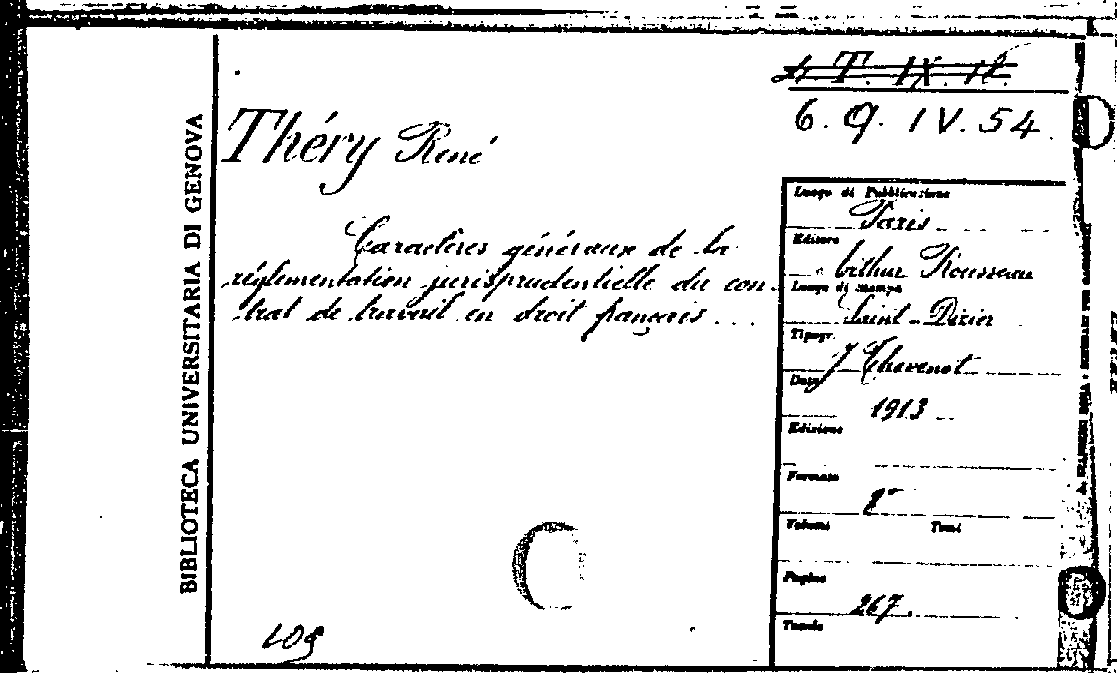 BIBLIOTECA UNIVERSITARIA DI GENOVA
4 T. IX. 12.
6. Q. IV. 54.
Théry René
Caractères généraux de la
réglementation jurisprudentielle du con-
trat de travail en droit français ...
Luogo di Pubblicazione
Paris
Editore
Arthur Rousseau
Luogo di stampa
Saint-Dizier
Tipogr.
J Thevenot
Data
1913
Edizione
Formato
8°
Volumi Tomi
Pagine
267.
Tavole
109